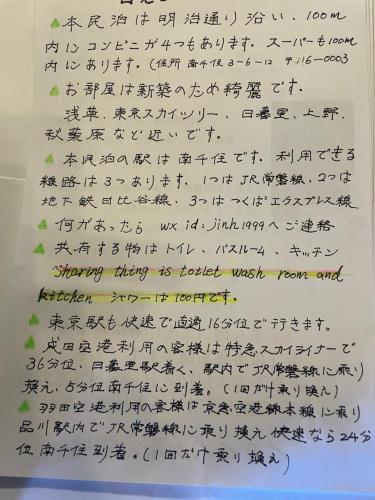 本民泊は明治通り沿い、100m
内にコンビニが4つもあります。スーパーも100m
内にあります。(住所 南千住3-6-12 〒116-0003
お部屋は新築のため綺麗です。
浅草、東京スカイツリー、日暮里、上野、
秋葉原など近いです。
本民泊の駅は南千住です。利用できる
線路は3つあります、1つはJR常磐線、2つは
地下鉄日比谷線、3つはつくばエクスプレス線
何があったら wx id:jinh1999へご連絡
共有する物はトイレ、バスルーム、キッチン
Sharing thing is toilet wash room and
kitchen シャワーは100円です。
東京駅も快速で直通16分位で行きます。
成田空港利用の客様は特急スカイライナーで
36分位、日暮里駅着く、駅内でJR常磐線に乗り
換え、5分位南千住に到着。(1回だけ乗り換え)
羽田空港利用の客様は京急空港線本線に乗り
品川駅内でJR常磐線に乗り換え快速なら24分
位南千住到着。(1回だけ乗り換え)